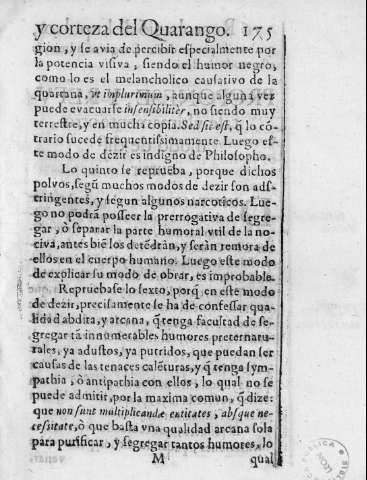 y corteza del Quarango. 175
gion, y se avia de percibir especialmente por
la potencia visiva, siendo el humor negro,
como lo es el melancholico causativo de la
quartana, ut inplurimum, aunque alguna vez
puede evacuarse insensibilitèr, no siendo muy
terrestre, y en mucha copia. Sed sic est, q̃ lo cõ-
trario sucede frequentissimamente. Luego es-
te modo de dezir es indigno de Philosopho.
Lo quinto se reprueba, porque dichos
polvos, segũ muchos modos de dezir son ads-
tringentes, y segun algunos narcoticos. Lue-
go no podrà posseer la prerrogativa de segre-
gar, ò separar la parte humoral vtil de la no-
civa, antes biẽ los detẽdràn, y seràn remora de
ellos en el cuerpo humano. Luego este modo
de explicar su modo de obrar, es improbable.
Repruebase lo sexto, porq̃ en este modo
de dezir, precisamente se ha de confessar qua-
lidad abdita, y arcana, q̃ tenga facultad de se-
gregar tã innumerables humores preternatu-
rales, ya adustos, ya putridos, que puedan ser
causas de las tenaces calẽturas, y q̃ tenga sym-
pathia, ò antipathia con ellos, lo qual no se
puede admitir, por la maxima comun, q̃ dize:
que non sunt multiplicandæ entitates, absque ne-
cessitate, ò que basta vna qualidad arcana sola
para purificar, y segregar tantos humores, lo
M qual